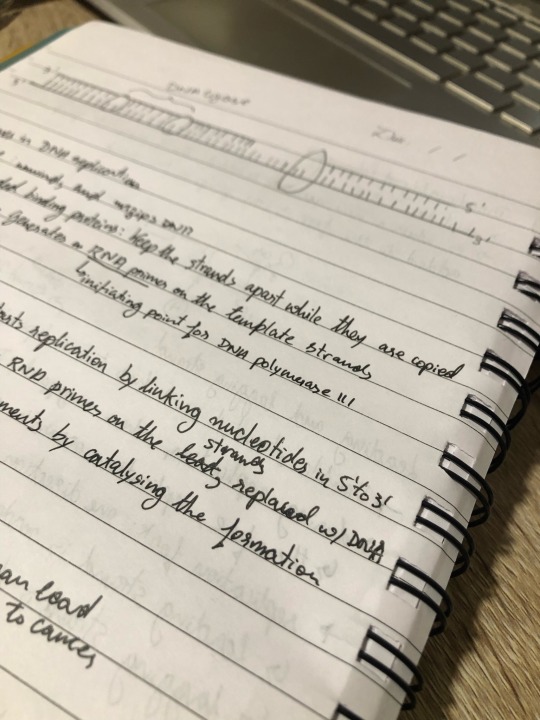 DNA ligase
5'
3'
in DNA replication
unwinds, and unzips DNA
binding proteins: Keep the strands apart while they are copied
generates a RNA primer on the template strands
initiating point for DNA polymerase III
replication by linking nucleotides in 5' to 3'
strands
RNA primes on the leads, replaced w/ DNA
by catalysing the formation
can lead
to cancer